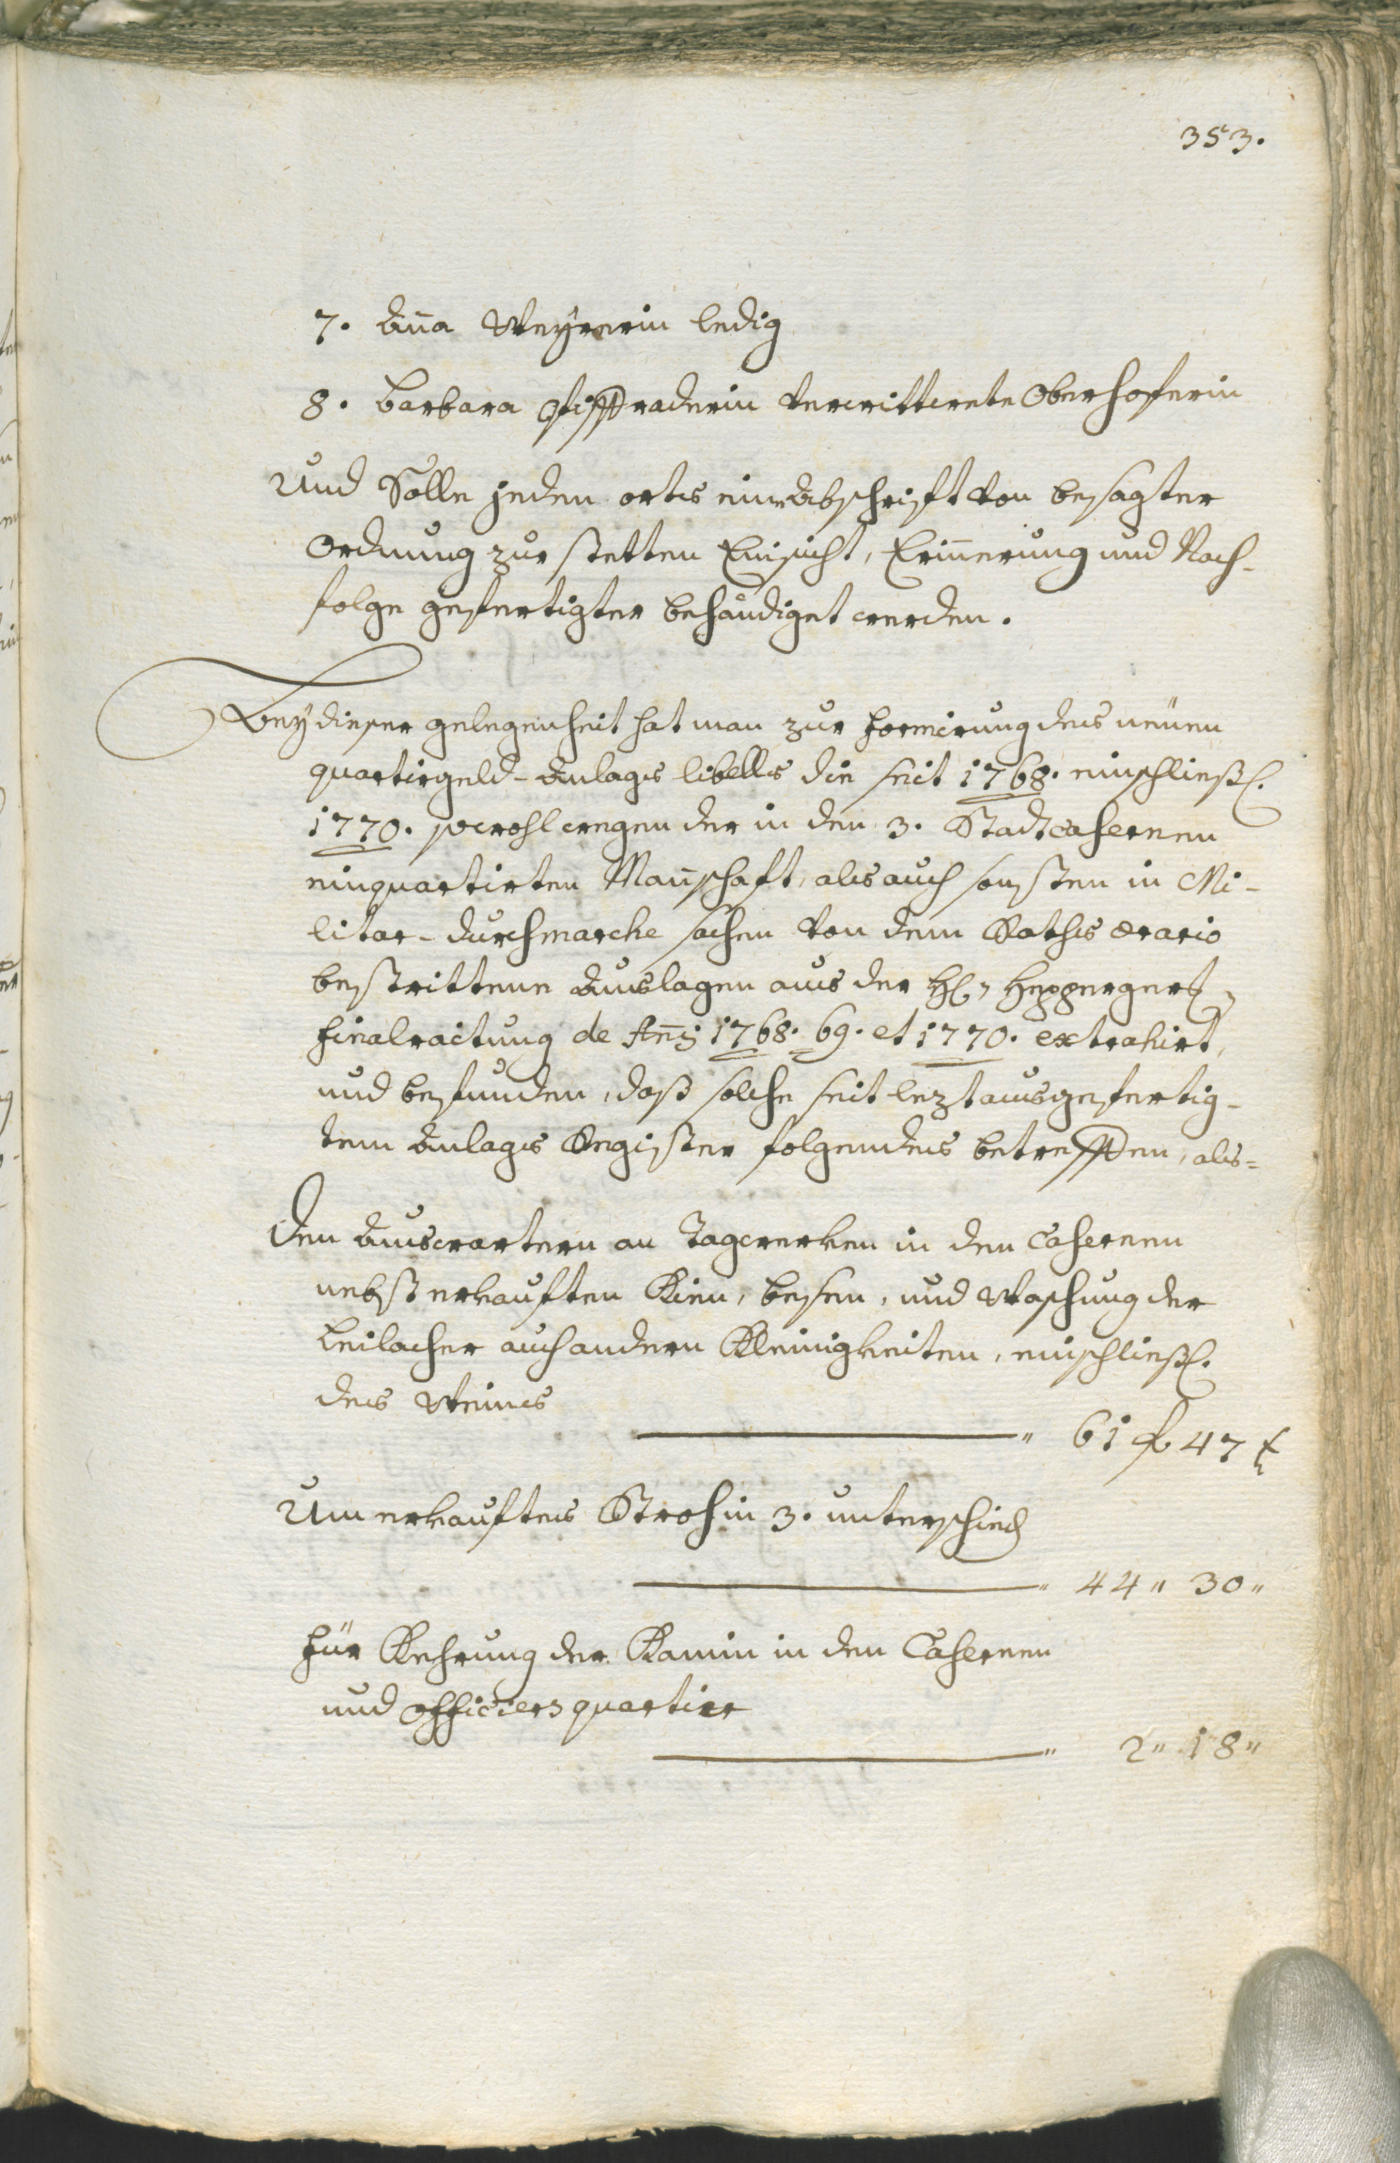 353.
7. Anna Weyrerin ledig
8. Barbara Pfiffraderin verwittwete Oberhoferin
Und Solle jeden orts eine Abschrift von besagter
Ordnung zur stetten Einsicht, Erinnerung und Nach-
folge gefertigter behändiget werden.
Bey dieser gelegenheit hat man zur formirung des neüen
quartirgeld-Anlags libells die seit 1768. einschließl.
1770. sowohl wegen der in den 3. Stadtcasernen
einquartirten Mannschaft, als auch sonsten in Mi-
litar-durchmarche sachen von dem Raths ærario
bestrittene Auslagen aus der H:
finalraitung de Anni 1768. 69. et 1770. extrahirt,
und befunden, daß solche seit lezt ausgefertig-
tem Anlags Register folgendes betreffen, als=
Den Auswartern an Tagwerken in den Casernen
nebst erkauften Kien, besen, und Waschung der
Leilacher auch andern Kleinigkeiten, einschließl.
des Weines
" 61 fl 47 x
Um erkauftes Stroh in 3. unterschied
" 44 " 30 "
für Kehrung der Kamin in den Casernen
und officiers quartier
" 2 " 18 "